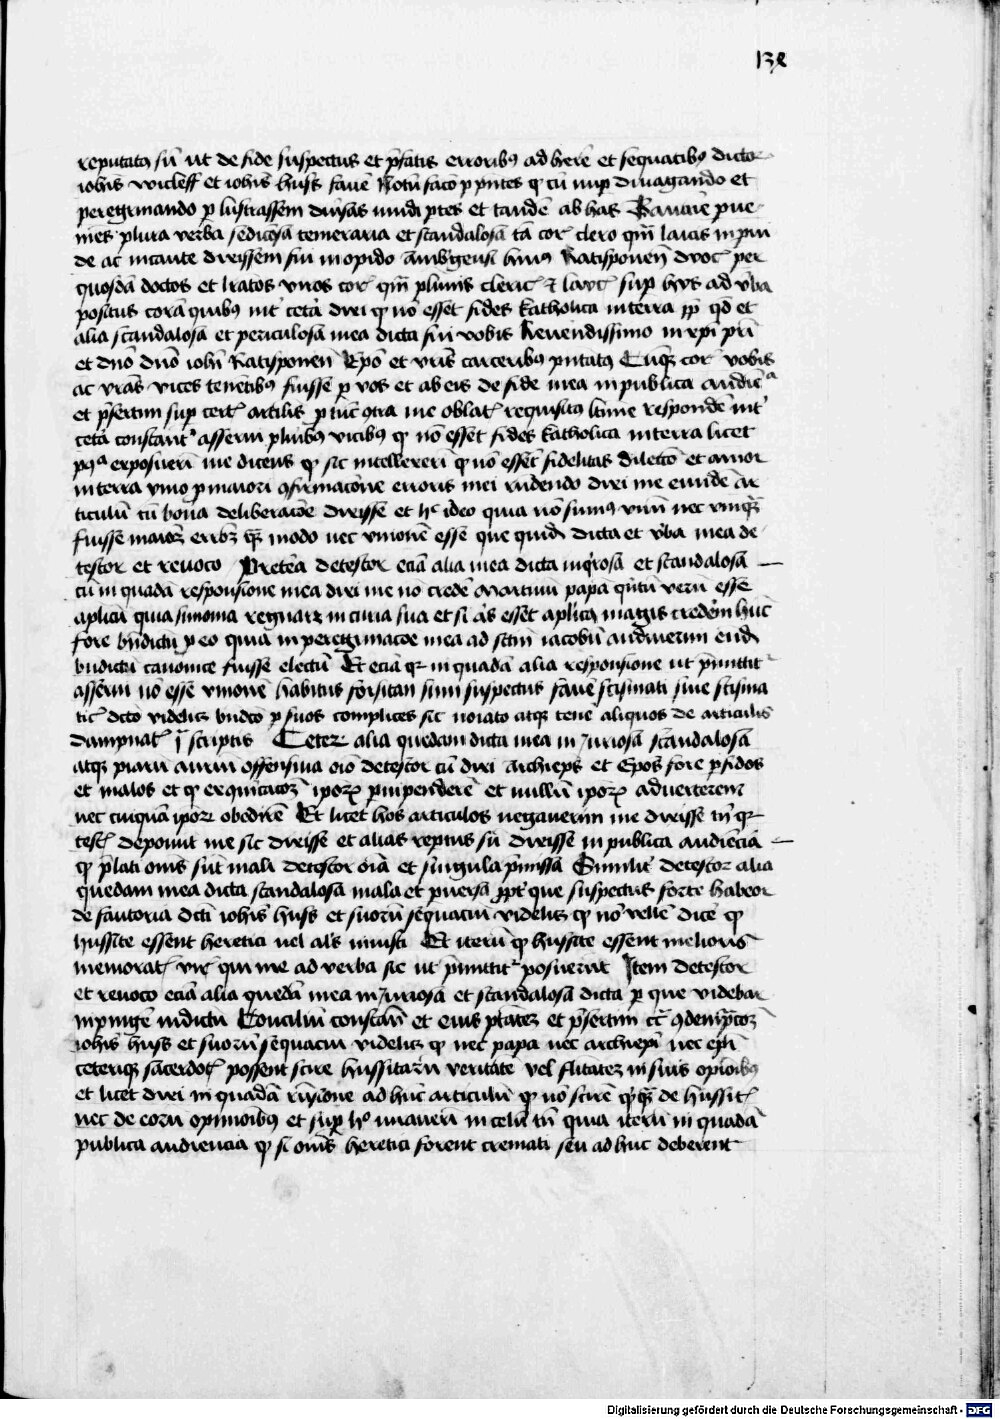 138
reputatus sū ut de fide suspectus et p̄fatis erroribꝰ adherē et sequacibꝰ dictorꝫ
iohīs wicleff et iohīs huss favē Notū facō p p̄ntes qꝫ cū nup divagando et
peregrinando p lustrassem diūsas mūdi ptes et tandē ab has Bavarie pve-
niēs plura verba sediciosa temeraria et scandalosa tā corā clero qm̄ laicis inpvi
de ac incaute dixissem fui in opido
quosdā doctos et lratos viros corā qm̄ plurimis cleric̄ et laic̄ sup hys ad vba
positus corā quibꝰ int̄ cetā dixi qꝫ nō esset fides katholica in terra qd et
alia scandalosa et periculosa mea dicta fui vobis Reverendissimo in xpō pri
et dnō dnō iohī Ratisponen̄ Epō et vris carceribꝰ pn̄tatꝰ Cūqꝫ corā vobis
ac vras vices tenētibꝰ fuissē p vos et ab eis de fide mea in publica audiēcia
et p̄sertim sup certis articlis p me oblat̄ requisitus lītime respondē int̄
cetā constant̄ asserui pluribꝰ vicibꝰ qꝫ nō esset fides katholica in terra licet
pꝰ exposuerī me dicens qꝫ sic intellexerī qꝫ nō esset fidelitas dilectio et amor
in terra p maiori ꝯfirmacōne erroris mei rn̄dendo dixi me eundē ar
ticulū cū bona deliberacōe dixisse et hoc ideo quia nō sumꝰ uniti nec
fuisse maiorē modo nec unionē esse que quidē dicta et vba mea de-
testor et revoco Pretea detestor eciā alia mea dicta et scandalosa
cū in quadā responsione mea dixi me nō credē Martinū papā quītū verū esse
aplicū quia simonia regnarꝫ in curia sua et si esset aplicꝰ magis crederē hūc
fore bn̄dictū p eo quia in peregrinacōe mea ad sctm iacobū audiverim eundē
bn̄dictū canonice fuisse electū Et eciā qꝫ in quadā alia responsione ut p̄mittit̄
asserui nō esse unionē habitus forsitan sim suspectus favē scismati sive scisma
tic̄ dcto videlicꝫ bn̄dcto p suos complices sic noiato atqꝫ tenē aliquos de articulis
dampnat̄ scriptis Ceterꝫ alia quedam dicta mea iniuriosa scandalosa
atqꝫ piarū auriū offensiva oīo detestor cū dixi archiepos et Epos fore pfidos
et malos et qꝫ ipōꝝ pvipenderē et nullū ipōꝝ adverterem
nec cuiquā ipōꝝ obedirē Et licet hos articulos negaverim me dixisse tn̄ qꝫ
testes deponūt me sic dixisse et alias reptus sū dixisse in publica audiēcia
qꝫ p̄lati om̄s sūt mali detestor oīa et singula p̄missa Similit̄ detestor alia
quedam mea dicta scandalosa mala et pversa ppt̄ que suspectus forte habeor
de fautoria dicti iohīs huss et suorū sequaciū videlicꝫ qꝫ nō vellē dicē qꝫ
hussite essent heretici vel als iniusti Et iterū qꝫ hussite essent meliores
memorat̄ viris qui me ad verba sic ut p̄mittit̄ posuerūt Item detestor
et revoco eciā alia quedā mea iniuriosa et scandalosa dicta p que videbar
inpingē indictū Conciliū constan̄ et eius ptātē et p̄sertim cc̄ ꝯdempnacōꝫ
iohīs huss et suorū sequaciū videlicꝫ qꝫ nec papa nec archiepi nec epi
ceteriqꝫ sacerdotes possent scire hussitarū veritatē vel falsitatē in suis opīoibꝰ
et licet dixi in quadā rn̄sione ad hūc articulū qꝫ nō scirē quicqꝫ de hussitis
nec de eorū opinioibꝰ et sup hoc iuraverī in celū tn̄ quia iterū in quadā
publica audiencia qꝫ si om̄s heretici forent cremati seu ad huc deberent
Digitalisierung gefördert durch die Deutsche Forschungsgemeinschaft - DFG